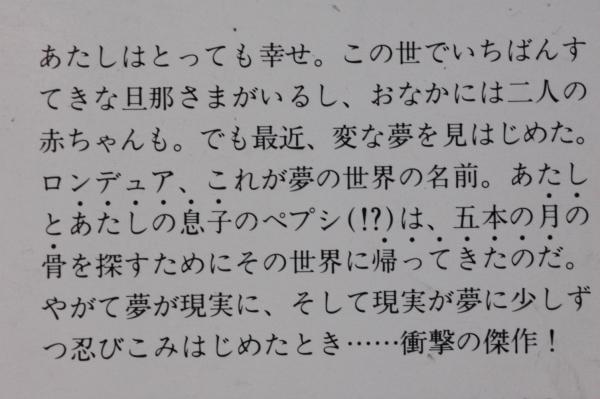 あたしはとっても幸せ。この世でいちばんす
てきな旦那さまがいるし、おなかには二人の
赤ちゃんも。でも最近、変な夢を見はじめた。
ロンデュア、これが夢の世界の名前。あたし
とあたしの息子のペプシ(!?)は、五本の月の
骨を探すためにその世界に帰ってきたのだ。
やがて夢が現実に、そして現実が夢に少しず
つ忍びこみはじめたとき……衝撃の傑作！